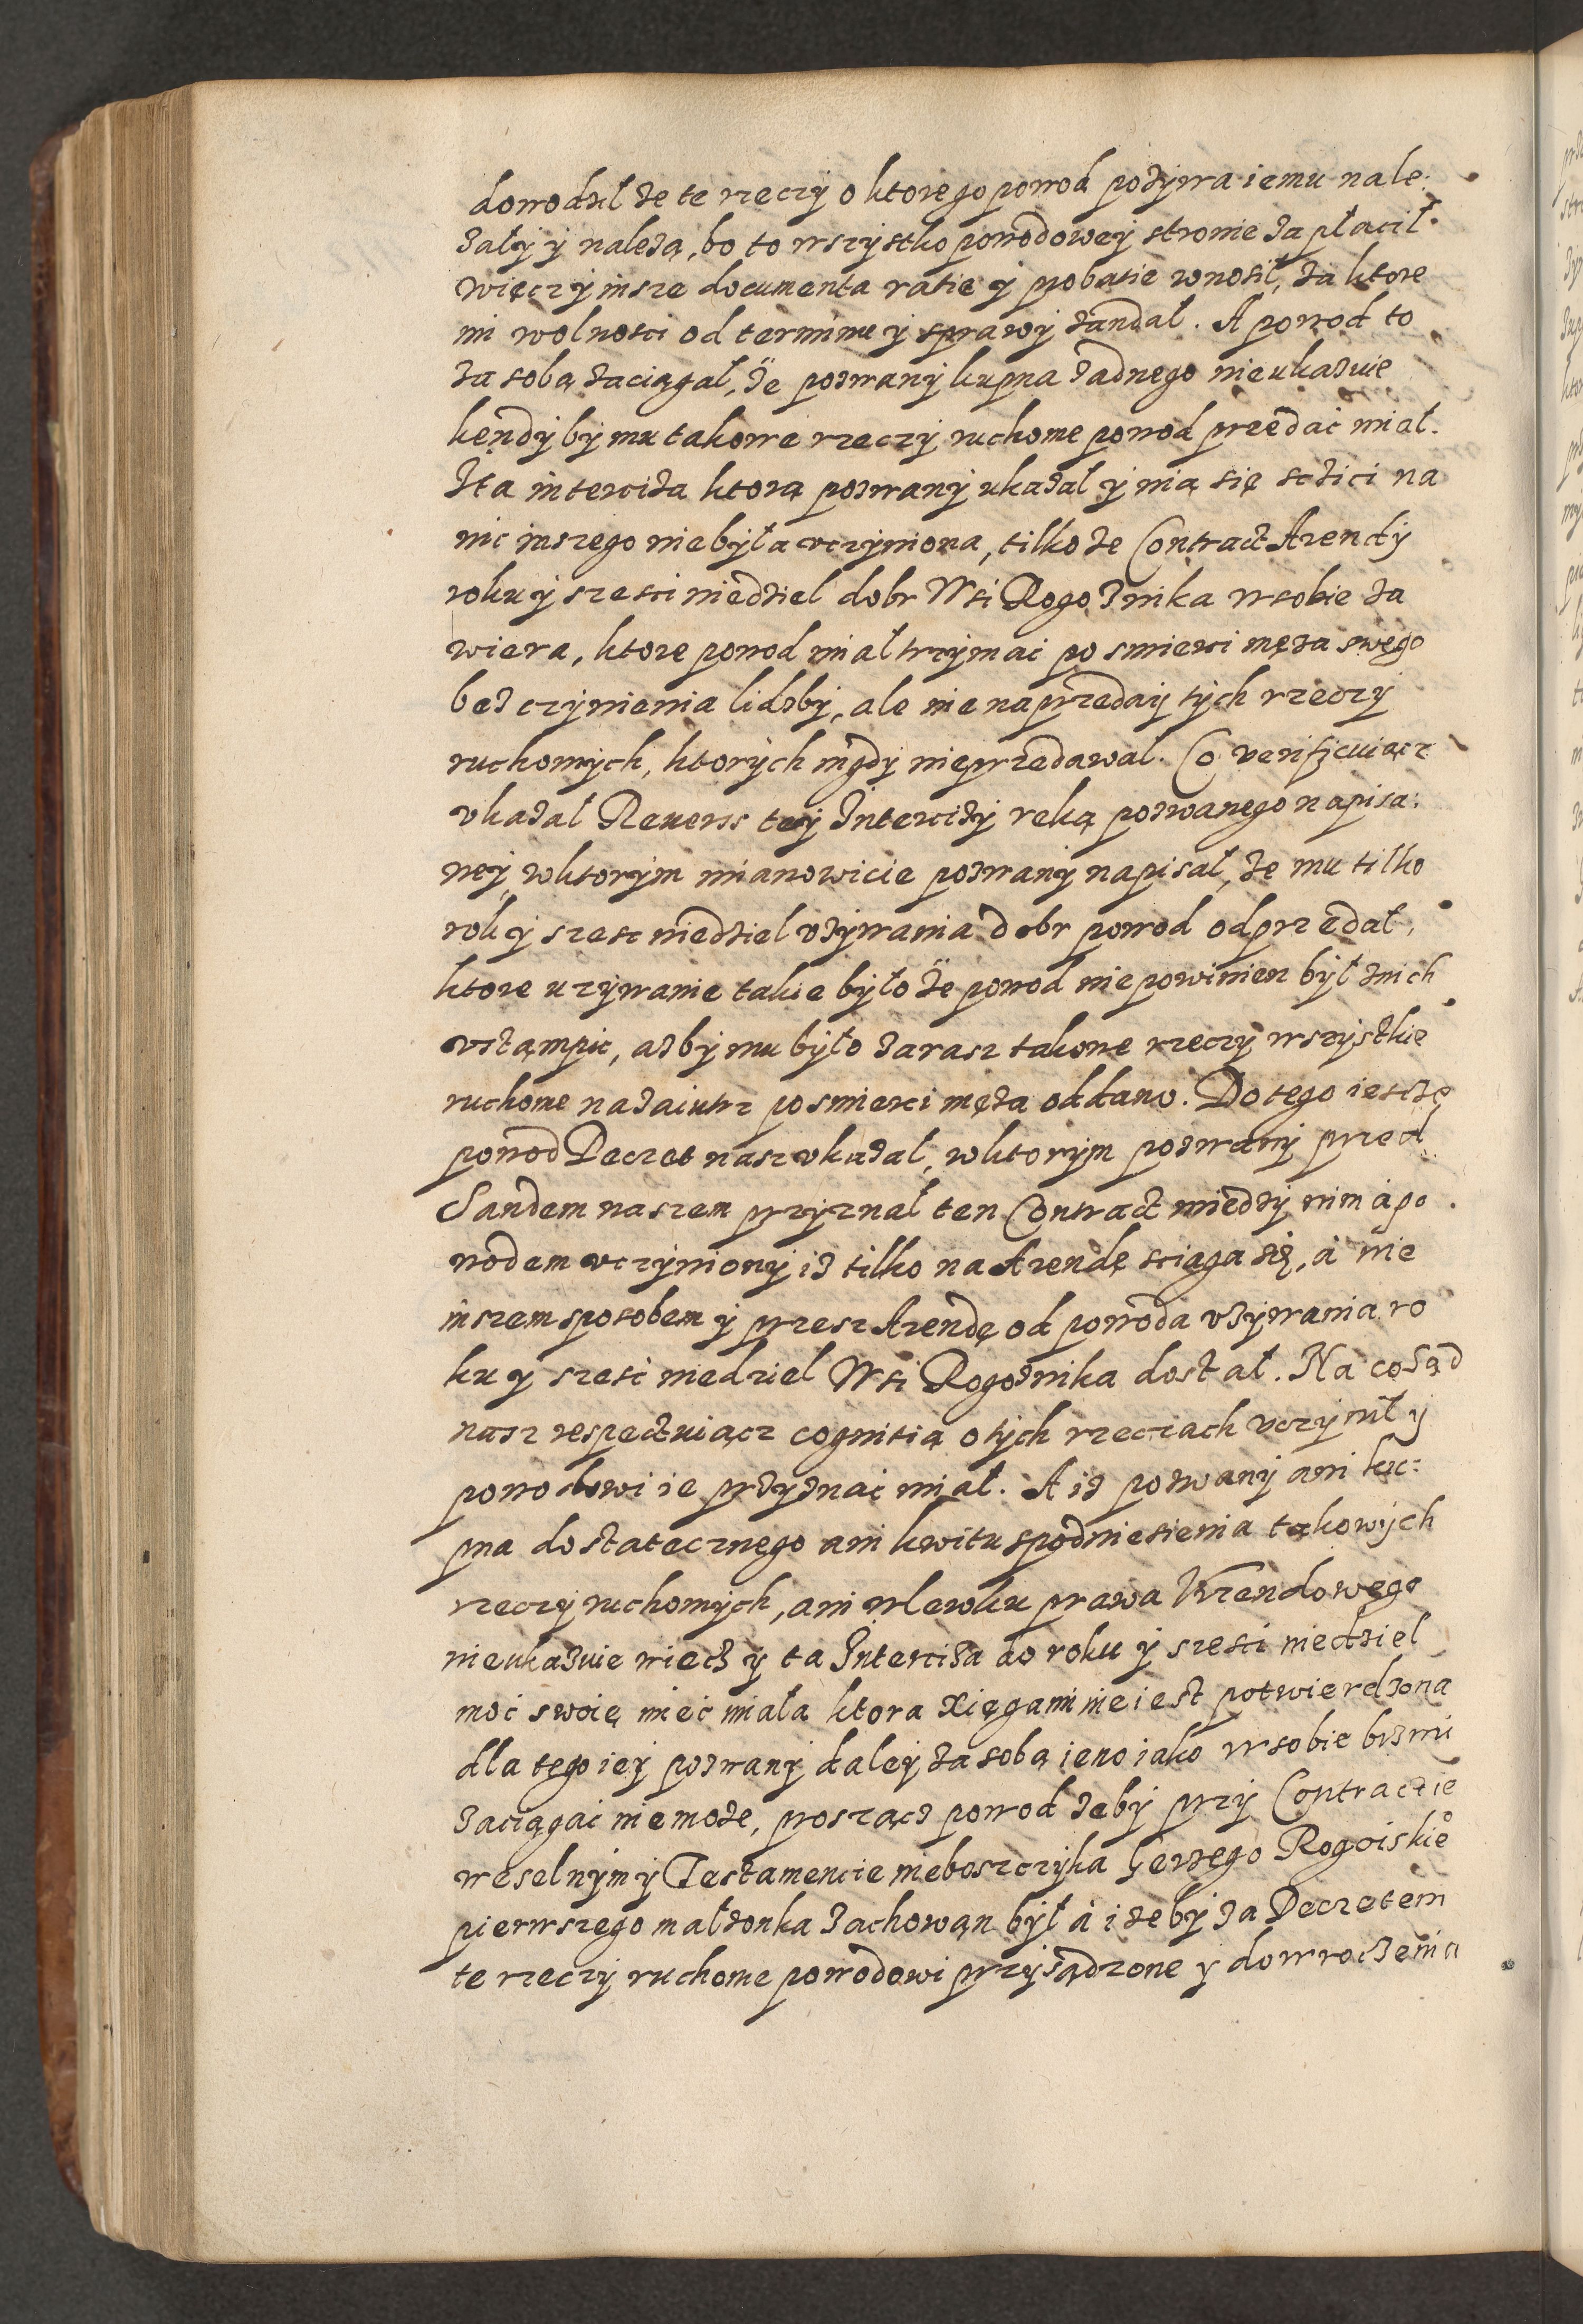 dowodził ze te rzeczy o ktorego powod pozywa iemu nale:
zały y nalezą, bo to wszystko powodowey stronie zapłacił.
więcz y insze documenta ratie y probatie wnosił, za ktore
mi wolnosci od terminu y sprawy żandał. A powod to
za sobą zaciągał, ze pozwany kupna zadnego nieukazuie
kendy by mu takowe rzeczy ruchome powod przedać miał.
Jta interciza ktorą pozwany ukazał y nią się sczici na
nic inszego niebyła uczyniona, tilko ze Contract Arendy
roku y szesci niedziel dobr Wsi Rogoznika wsobie za
wiera, ktore powod miał trzymać po smierci męza swego
bez czynienia lidzby, ale nie naprzedaiy tych rzeczy
ruchomych, ktorych nigdy nieprzedawał. Co verificuiącz
ukazał Reuers tey Jntercizy reką pozwanego napisa:
ney wktorym mianowicie pozwany napisał, ze mu tilko
rok y szesc niedziel uzywania dobr powod odprzedał,
ktore uzywanie takie było ze powod niepowinien był znich
ustąmpic, azby mu było zarasz takowe rzeczy wszystkie
ruchome nazaiutrz posmierci męza oddano. Do tego iescze
powod Decret nasz ukazał, wktorym pozwany przed
Sandem naszem przyznał ten Contract miedzy nim a po
wodem uczyniony iz tilko na Arendę sciąga się, a nie
inszem sposobem y przesz Arendę od powoda uzywania ro
ku y szesc niedziel Wsi Rogoznika dostał. Na co Sąd
nasz respectuiącz cognitią o tych rzeczach uczynił y
powodowi ie przyznać miał. A iz pozwany ani ku:
pna dostatecznego ani kwitu spodniesienia takowych
rzeczy ruchomych, ani wlewku prawa Urzendowego
nieukazuie niech y ta Jnterciza do roku y szesci niedziel
moć swoię mieć miała ktora xięgami nie iest potwierdzona
dla tego iey pozwany daley za sobą ieno iako wsobie brzmi
zaciągać niemoze, prosząc powod zeby przy Contractie
weselnym y Testamencie nieboszczyka Gerzego Rogoiskie°
pierwszego małzonka zachowan był a i zeby za Decretem
te rzeczy ruchome powodowi przysądzone y dowroczenia